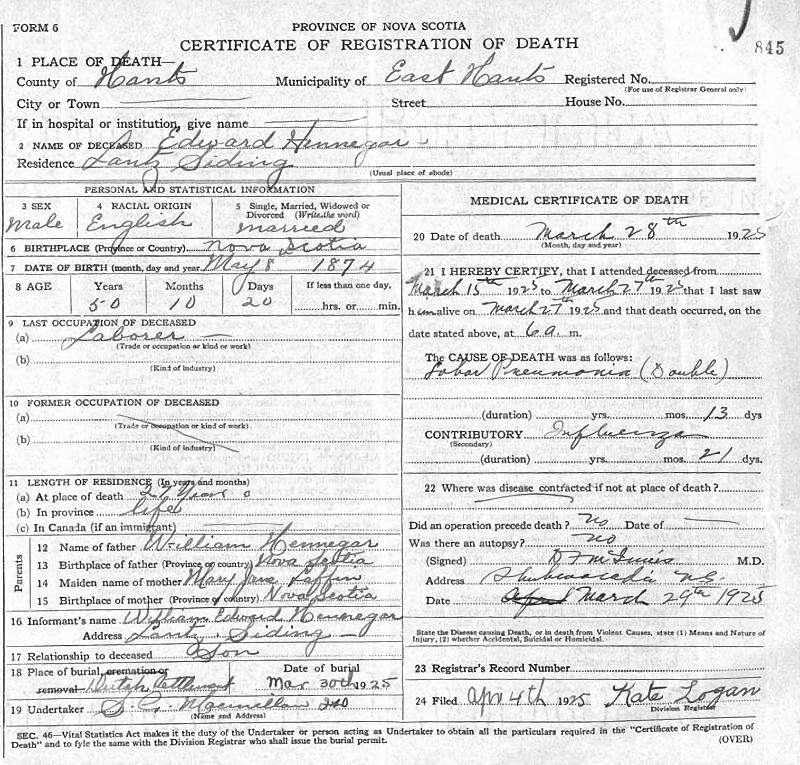 FORM 6
PROVINCE OF NOVA SCOTIA
CERTIFICATE OF REGISTRATION OF DEATH
845
1 PLACE OF DEATH—
County of Hants Municipality of East Hants Registered No.
(For use of Registrar General only)
City or Town Street House No.
If in hospital or institution, give name
2 NAME OF DECEASED Edward Hennegar
Residence Lantz Siding
(Usual place of abode)
PERSONAL AND STATISTICAL INFORMATION
3 SEX 4 RACIAL ORIGIN 5 Single, Married, Widowed or Divorced (Write the word)
Male English married
6 BIRTHPLACE (Province or Country) Nova Scotia
7 DATE OF BIRTH (month, day and year) May 8 1874
8 AGE Years Months Days If less than one day,
50 10 20 hrs. or min.
9 LAST OCCUPATION OF DECEASED
(a) Laborer
(Trade or occupation or kind of work)
(b)
(Kind of industry)
10 FORMER OCCUPATION OF DECEASED
(a)
(Trade or occupation or kind of work)
(b)
(Kind of industry)
11 LENGTH OF RESIDENCE (In years and months)
(a) At place of death Years
(b) In province life
(c) In Canada (if an immigrant)
Parents
12 Name of father William Hennegar
13 Birthplace of father (Province or country) Nova Scotia
14 Maiden name of mother Mary Jane
15 Birthplace of mother (Province or country) Nova Scotia
16 Informant's name William Edward Hennegar
Address Lantz Siding
17 Relationship to deceased Son
18 Place of burial, cremation or Date of burial
removal Mar 30th 1925
19 Undertaker
(Name and Address)
MEDICAL CERTIFICATE OF DEATH
20 Date of death March 28th 1925
(Month, day and year)
21 I HEREBY CERTIFY, that I attended deceased from
March 15th 1925 to March 27th 1925 that I last saw
him alive on March 27th 1925 and that death occurred, on the
date stated above, at 6 a. m.
The CAUSE OF DEATH was as follows:
Lobar Pneumonia (Double)
(duration) yrs. mos. 13 dys
CONTRIBUTORY Influenza
(Secondary)
(duration) yrs. mos. 21 dys.
22 Where was disease contracted if not at place of death?
Did an operation precede death? no Date of
Was there an autopsy? no
(Signed) D F McInnis M.D.
Address Shubenacadie N.S.
Date March 29th 1925
State the Disease causing Death, or in death from Violent Causes, state (1) Means and Nature of
Injury, (2) whether Accidental, Suicidal or Homicidal.
23 Registrar's Record Number
24 Filed Apr 4th 1925 Kate Logan
Division Registrar
SEC. 46—Vital Statistics Act makes it the duty of the Undertaker or person acting as Undertaker to obtain all the particulars required in the "Certificate of Registration of
Death" and to fyle the same with the Division Registrar who shall issue the burial permit.
(OVER)